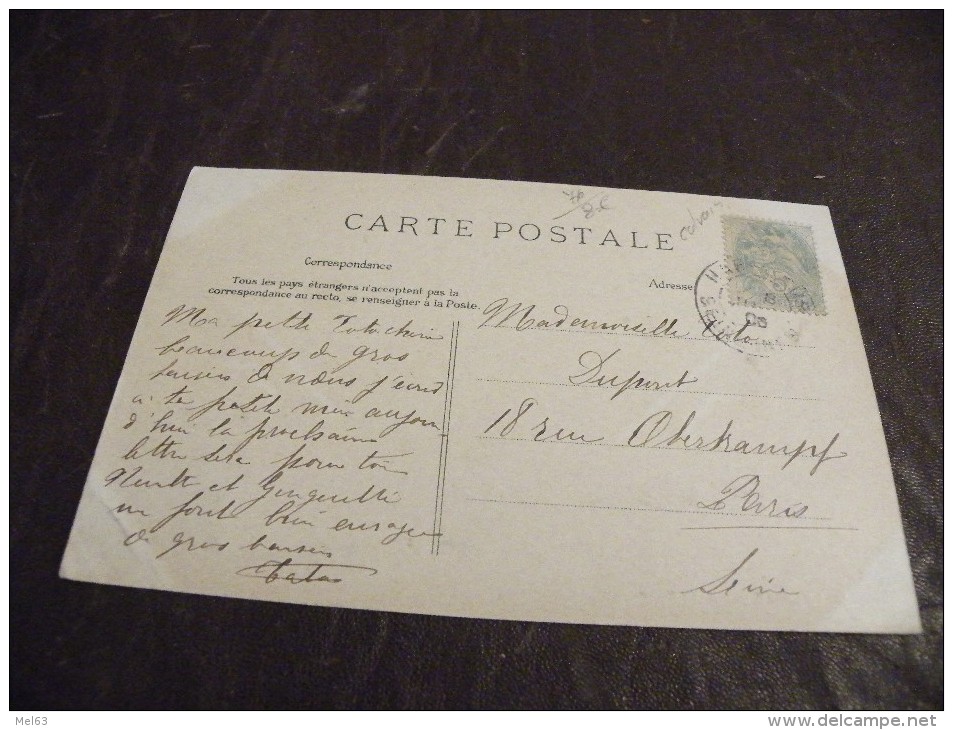 CARTE POSTALE
Correspondance
Tous les pays étrangers n'acceptent pas la
correspondance au recto, se renseigner à la Poste.
Adresse
Ma petite
beaucoup de gros
baisers de nous j'écris
à ta petite aujour
d'hui la prochaine
lettre sera pour toi
et
me font bien enrager
de gros baisers
Tata
Mademoiselle
Dupont
18 rue Oberkampf
Paris
Seine
Mel63
http://www.delcampe.net